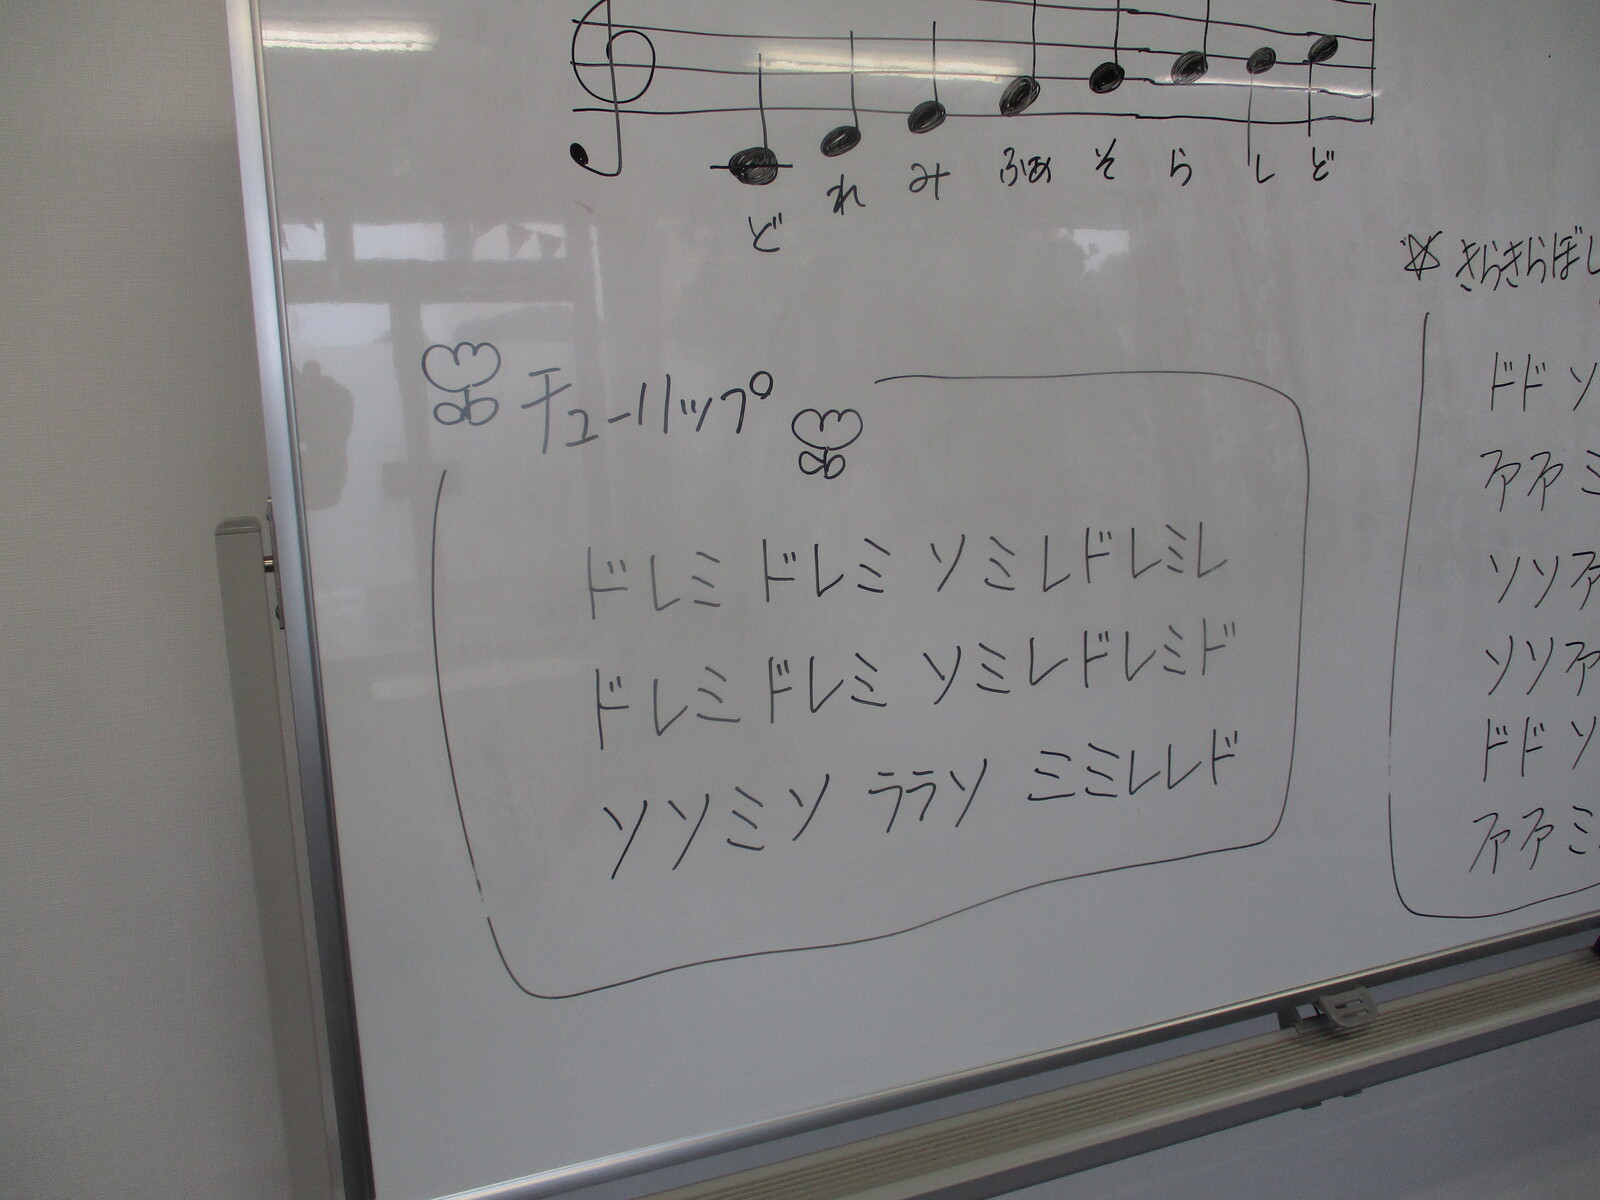 ど れ み ふぁ そ ら し ど
チューリップ
ドレミ ドレミ ソミレドレミレ
ドレミ ドレミ ソミレドレミド
ソソミソ ララソ ミミレレド
☆ きらきらぼし
ドド ソ
ファファ ミ
ソソファ
ソソファ
ドド ソ
ファファ ミ